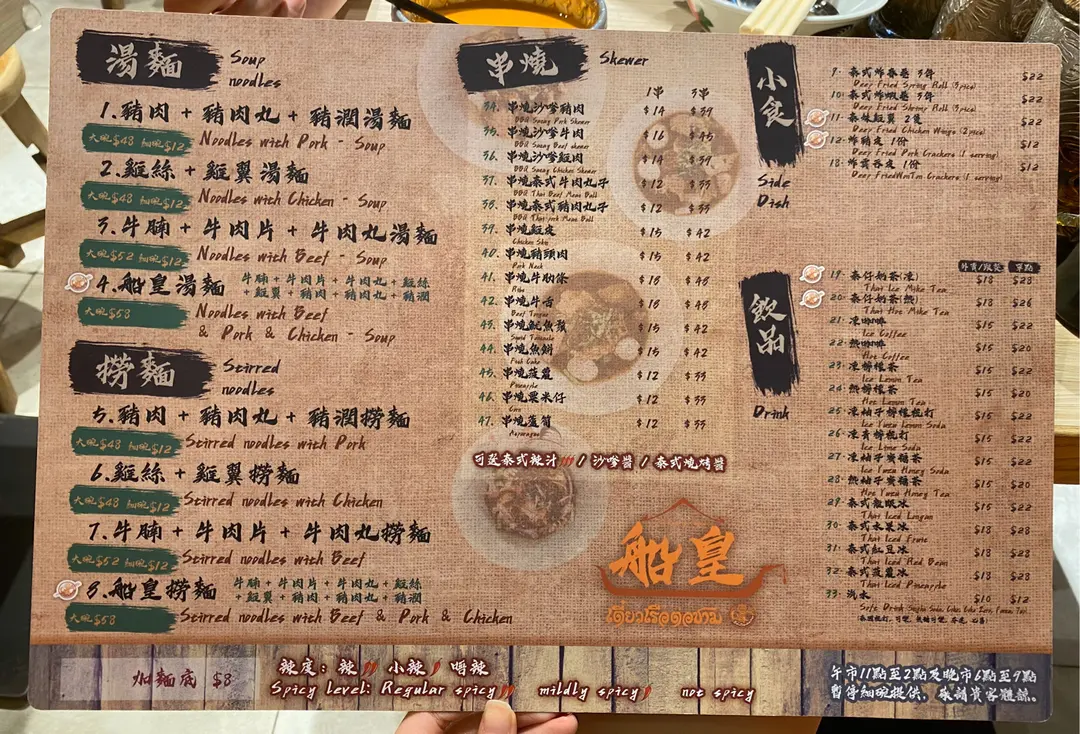 湯麵
Soup
noodles
1.豬肉 + 豬肉丸 + 豬潤湯麵
大碗$48 細碗$12
Noodles with Pork - Soup
2.雞絲 + 雞翼湯麵
大碗$48 細碗$12
Noodles with Chicken - Soup
3.牛腩 + 牛肉片 + 牛肉丸湯麵
大碗$52 細碗$12
Noodles with Beef - Soup
4.船皇湯麵
牛腩 + 牛肉片 + 牛肉丸 + 雞絲
+ 雞翼 + 豬肉 + 豬肉丸 + 豬潤
大碗$58
Noodles with Beef
& Pork & Chicken - Soup
撈麵
Stirred
noodles
5.豬肉 + 豬肉丸 + 豬潤撈麵
大碗$48 細碗$12
Stirred noodles with Pork
6.雞絲 + 雞翼撈麵
大碗$48 細碗$12
Stirred noodles with Chicken
7.牛腩 + 牛肉片 + 牛肉丸撈麵
大碗$52 細碗$12
Stirred noodles with Beef
8.船皇撈麵
牛腩 + 牛肉片 + 牛肉丸 + 雞絲
+ 雞翼 + 豬肉 + 豬肉丸 + 豬潤
大碗$58
Stirred noodles with Beef & Pork & Chicken
串燒
Skewer
1串 3串
34. 串燒沙嗲豬肉 $14 $39
BBQ Satay Pork Skewer
35. 串燒沙嗲牛肉 $16 $45
BBQ Satay Beef skewer
36. 串燒沙嗲雞肉 $14 $39
BBQ Satay Chicken Skewer
37. 串燒泰式牛肉丸子 $12 $33
BBQ Thai Beef Meat Ball
38. 串燒泰式豬肉丸子 $12 $33
BBQ Thai pork Meat Ball
39. 串燒雞皮 $15 $42
Chicken Skin
40. 串燒豬頸肉 $15 $42
Pork Neck
41. 串燒牛肋條 $16 $45
Ribs
42. 串燒牛舌 $16 $45
Beef Tongue
43. 串燒魷魚鬚 $15 $42
Squid Tentacle
44. 串燒魚餅 $15 $42
Fish Cake
45. 串燒菠蘿 $12 $33
Pineapple
46. 串燒粟米仔 $12 $33
Corn
47. 串燒蘆筍 $12 $33
Asparagus
可選泰式辣汁 / 沙嗲醬 / 泰式燒烤醬
船皇
小食
Side
Dish
9. 泰式炸春卷 3件 $22
Deep Fried Spring Roll (3pics)
10. 泰式炸蝦卷 3件 $22
Deep Fried Shrimp Roll (3pics)
11. 泰妹雞翼 2隻 $22
Deep Fried Chicken Wings (2pics)
12. 炸豬皮 1份 $12
Deep Fried Pork Crackers (1 serving)
13. 炸雲吞皮 1份 $12
Deep FriedWonTon Crackers(1 serving)
飲品
Drink
外賣/跟餐 單點
19. 泰仔奶茶(凍) $18 $28
Thai Ice Milk Tea
20. 泰仔奶茶(熱) $18 $26
Thai Hot Milk Tea
21. 凍咖啡 $15 $22
Ice Coffee
22. 熱咖啡 $15 $20
Hot Coffee
23. 凍檸檬茶 $15 $22
Ice Lemon Tea
24. 熱檸檬茶 $15 $20
Hot Lemon Tea
25. 凍柚子檸檬梳打 $15 $22
Ice Yuzu Lemon Soda
26. 凍青檸梳打 $15 $22
Ice Lime Soda
27. 凍柚子蜜糖茶 $15 $22
Ice Yuzu Honey Soda
28. 熱柚子蜜糖茶 $15 $20
Hot Yuzu Honey Tea
29. 泰式龍眼冰 $15 $22
Thai Iced Longan
30. 泰式水果冰 $18 $28
Thai Iced Fruit
31. 泰式紅豆冰 $18 $28
Thai Iced Red Bean
32. 泰式菠蘿冰 $18 $28
Thai Iced Pineapple
33. 汽水 $10 $12
加麵底 $8
辣度: 辣 小辣 唔辣
Spicy level: Regular spicy mildly spicy not spicy
午市11點至2點及晚市6點至9點
暫停細碗提供, 敬請貴客體諒.